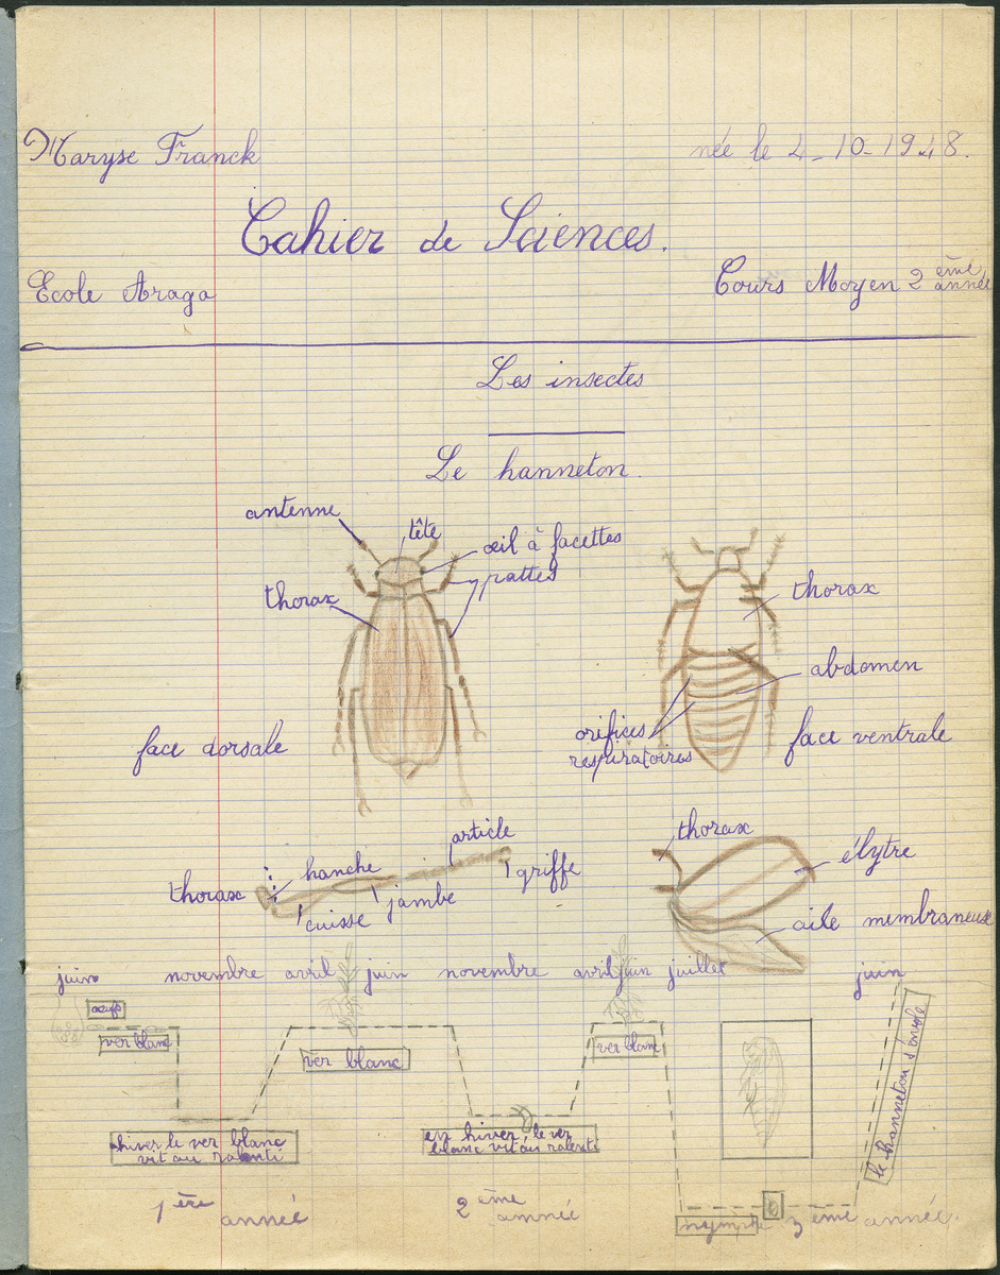 Maryse Franck
née le 2-10-1948.
Cahier de Sciences.
Ecole Arago
Cours Moyen 2 ème année
Les insectes
Le hanneton.
antenne
tête
œil à facettes
pattes
thorax
thorax
abdomen
orifices
respiratoires
face dorsale
face ventrale
article
thorax
hanche
griffe
élytre
thorax
jambe
cuisse
aile membraneuse
juin novembre avril juin novembre avril juin juillet juin
œufs
ver blanc
ver blanc
ver blanc
le hanneton s'envole
hiver le ver blanc
vit au ralenti
en hiver, le ver
blanc vit au ralenti
1ère année
2ème année
nymphe
3ème année.